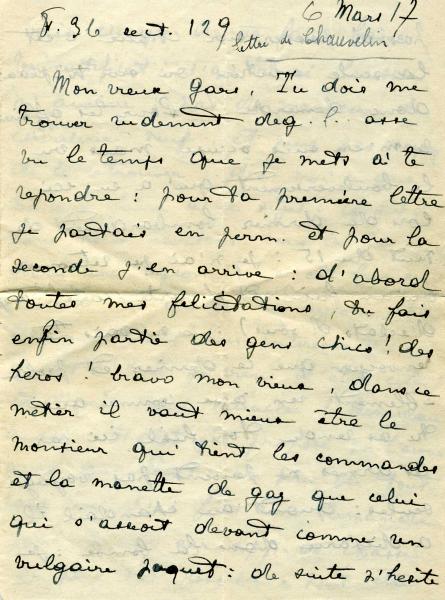 F. 36 sect. 129
6 Mars 17
lettre de Chauvelin
Mon vieux gars, Tu dois me
trouver rudement deg.l..asse
vu le temps que je mets à te
repondre : pour ta première lettre
je partais en perm. et pour la
seconde j'en arrive : d'abord
toutes mes felicitations, tu fais
enfin partie des gens chics ! des
heros ! bravo mon vieux, dans ce
métier il vaut mieux être le
monsieur qui tient les commandes
et la manette de gaz que celui
qui s'assoit devant comme un
vulgaire paquet : de suite j'hesite